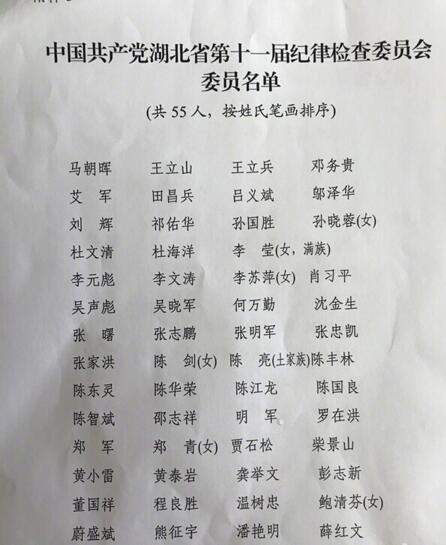 中国共产党湖北省第十一届纪律检查委员会
委员名单
(共55人，按姓氏笔画排序)
马朝晖 王立山 王立兵 邓务贵
艾 军 田昌兵 吕义斌 邬泽华
刘 辉 祁佑华 孙国胜 孙晓蓉(女)
杜文清 杜海洋 李 莹(女，满族)
李元彪 李文涛 李苏萍(女) 肖习平
吴声彪 吴晓军 何万勤 沈金生
张 曙 张志鹏 张明军 张忠凯
张家洪 陈 剑(女) 陈 亮(土家族) 陈丰林
陈东灵 陈华荣 陈江龙 陈国良
陈智斌 邵志祥 明 军 罗在洪
郑 军 郑 青(女) 贾石松 柴景山
黄小雷 黄泰岩 龚举文 彭志新
董国祥 程良胜 温树忠 鲍清芬(女)
蔚盛斌 熊征宇 潘艳明 薛红文